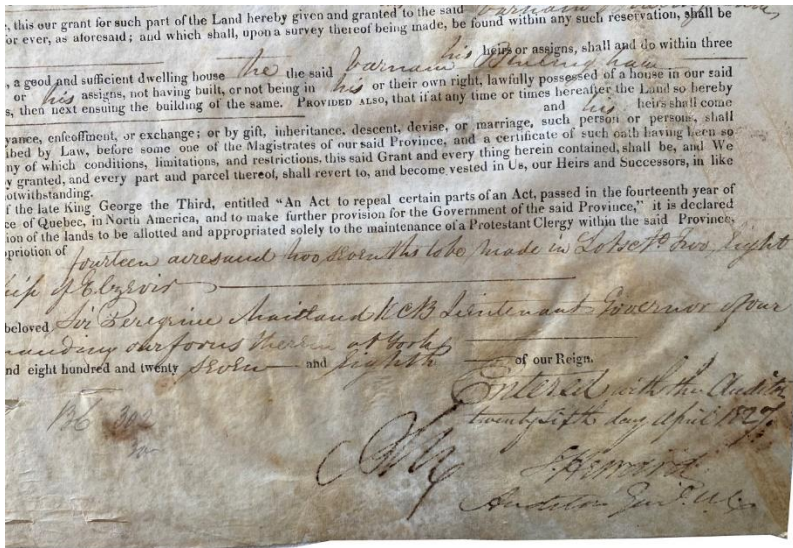 , this our grant for such part of the Land hereby given and granted to the said
or ever, as aforesaid; and which shall, upon a survey thereof being made, be found within any such reservation, shall be
his heirs or assigns, shall and do within three
, a good and sufficient dwelling house he the said
or his assigns, not having built, or not being in his or their own right, lawfully possessed of a house in our said
s, then next ensuing the building of the same. PROVIDED ALSO, that if at any time or times hereafter the Land so hereby
and his heirs shall come
yance, enfeoffment, or exchange; or by gift, inheritance, descent, devise, or marriage, such person or persons, shall
ibed by Law, before some one of the Magistrates of our said Province, and a certificate of such oath having been so
ny of which conditions, limitations, and restrictions, this said Grant and every thing herein contained, shall be, and We
y granted, and every part and parcel thereof, shall revert to, and become vested in Us, our Heirs and Successors, in like
otwithstanding.
f the late King George the Third, entitled "An Act to repeal certain parts of an Act, passed in the fourteenth year of
ce of Quebec, in North America, and to make further provision for the Government of the said Province," it is declared
ion of the lands to be allotted and appropriated solely to the maintenance of a Protestant Clergy within the said Province.
opriation of fourteen acres and two sevenths to be made in Lot No Two, Eight
ship of Elzevir
beloved Sir Peregrine Maitland KCB Lieutenant Governor of our
manding our forces therein at York
nd eight hundred and twenty seven and Eighth of our Reign.
Entered with the Auditor
twenty fifth day April 1827
136 302
Auditor Genl. U.C.